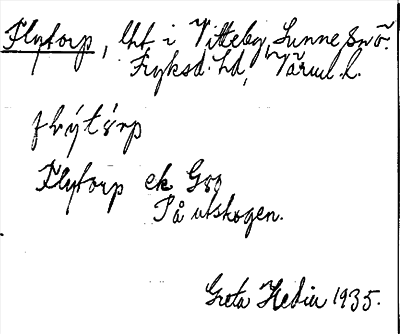 Flytorp, lht i Vitteby, Sunne snö.
Fryksd. hd, Värml. l.
flýtórp
Flytorp ek G80
På utskogen.
Greta Hedin 1935.